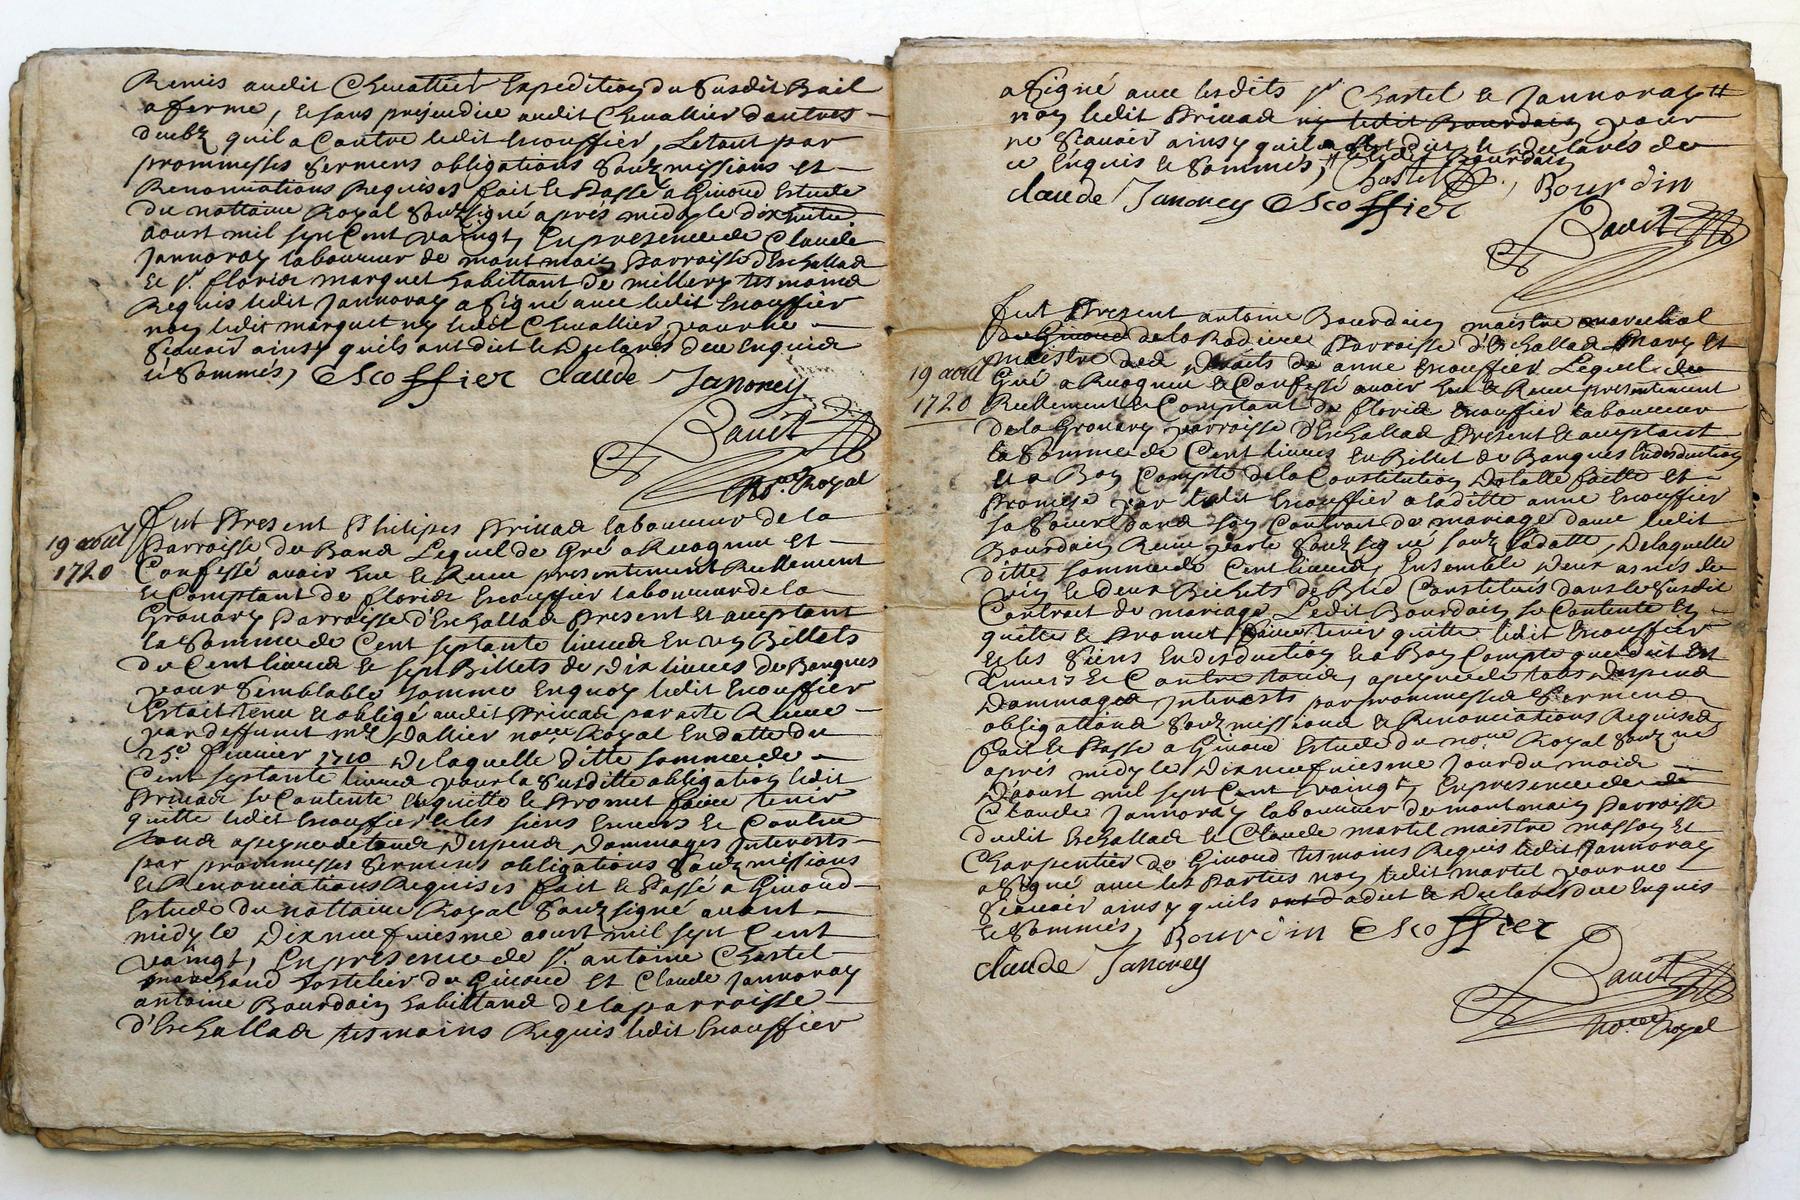 Remis audit Chevallier Expedition du susdit Bail
afferme, & sans prejudice audit Chevallier dautres
deubz quil a Contre ledit Escouffier, Letout par
prommesses sermens obligations soubzmissions et
Renonciations Requises fait & Passé a Givord Estude
du nottaire Royal soubzsigné apres midy le dix huitie
aoust mil sept Cent vaingt, En presence de Claude
Jannoray laboureur de montmain parroisse dEschallad
& sr. floride marquet habittant de millery tesmoins
Requis ledit Jannoray a signé avec ledit Escouffier
non ledit marquet ny ledit Chevallier pour ne
scavoir ainsy quils ont dict & Declarés dece Enquis
& sommés, Escoffier claude Janorey
no.re Royal
19 aout
1720
fut Present Philipes Privad laboureur de la
Parroisse de Band Lequel de Gré a Recognu et
Confessé avoir heu & Receu presentement Reellement
& Comptant de floride Escouffier laboureur de la
Grouary Parroisse d'Eschallad Present & aceptant
la somme de Cent septante livres En un Billets
de Cent livres & sept Billets de Dix livres de Banques
pour semblable somme En quoy ledit Escouffier
Estoit tenu & obligé audit Privad par acte Receu
par deffunt mre Dallier nore Royal En datte du
25e. fevrier 1710 De laquelle ditte somme de
Cent septante livres pour la susditte obligation ledit
Privad se Contente En quitte & Promet faire tenir
quitte ledit Escouffier & les siens Envers & Contre
tous apeyne de tous Despens Dommages Interests
par prommesses sermens obligations soubzmissions
& Renonciations Requises fait & Passé a Givord
Estude du nottaire Royal soubzsigné avant
midy le Dixneufviesme aoust mil sept Cent
vaingt, En presence de sr. antoine Chastel
marchand hostelier du Givord et Claude Jannoray
antoine Bourdain habittans de la parroisse
d'Eschallad tesmoins Requis ledit Escouffier
a signé avec lesdits sr Chastel & Jannoray
non ledit Privad ny ledit Bourdain pour
ne scavoir ainsy quil a dict & declarés de
ce Enquis & sommés, & ledit Bourdain
Chastel, Bourdin
claude Janorey Escoffier
19 aout
1720
fut Present antoine Bourdain maistre marechal
de Givord de la Rodiere Parroisse d'Eschallad mary et
maistre des Droits de anne Escouffier Lequel de
Gré a Recognu & Confessé avoir heu & Receu presentement
Reellement & Comptant de floride Escouffier laboureur
de la Grouary parroisse d'Eschallad Present & aceptant
la somme de Cent livres En Billet de Banques En desduction
& a Bon Compte de la Constitution Dotalle faitte et
Promise par ledit Escouffier a laditte anne Escouffier
sa soeur dans son Contrait de mariage davec ledit
Bourdain Receu par le soubzsigné soubz sadatte, De laquelle
ditte somme de Cent livres, Ensemble Deux asnés de
vin & deux Bichets de Bled Constitués dans le susdit
Contrait de mariage Ledit Bourdain se Contente En
quitte & Promet faire tenir quitte ledit Escouffier
& les siens En desduction & a Bon Compte que dict Est
Envers & Contre tous, apeyne de tous Despens
Dommages Interests par prommesses & sermens
obligations soubzmissions & Renonciations Requises
fait & Passé a Givord Estude du nore Royal soubzsné
aprés midy le Dixneufviesme Jour du mois
Daoust mil sept Cent vaingt, En presence de
Claude Jannoray laboureur de montmain Parroisse
dudit Eschallad & Claude martel maistre masson Et
Charpentier de Givord tesmoins Requis ledit Jannoray
a signé avec les Parties non ledit martel pour ne
scavoir ainsy quils ont a dict & Declarés dece Enquis
& sommés, Bourdin Escoffier
claude Janorey
no.re Royal